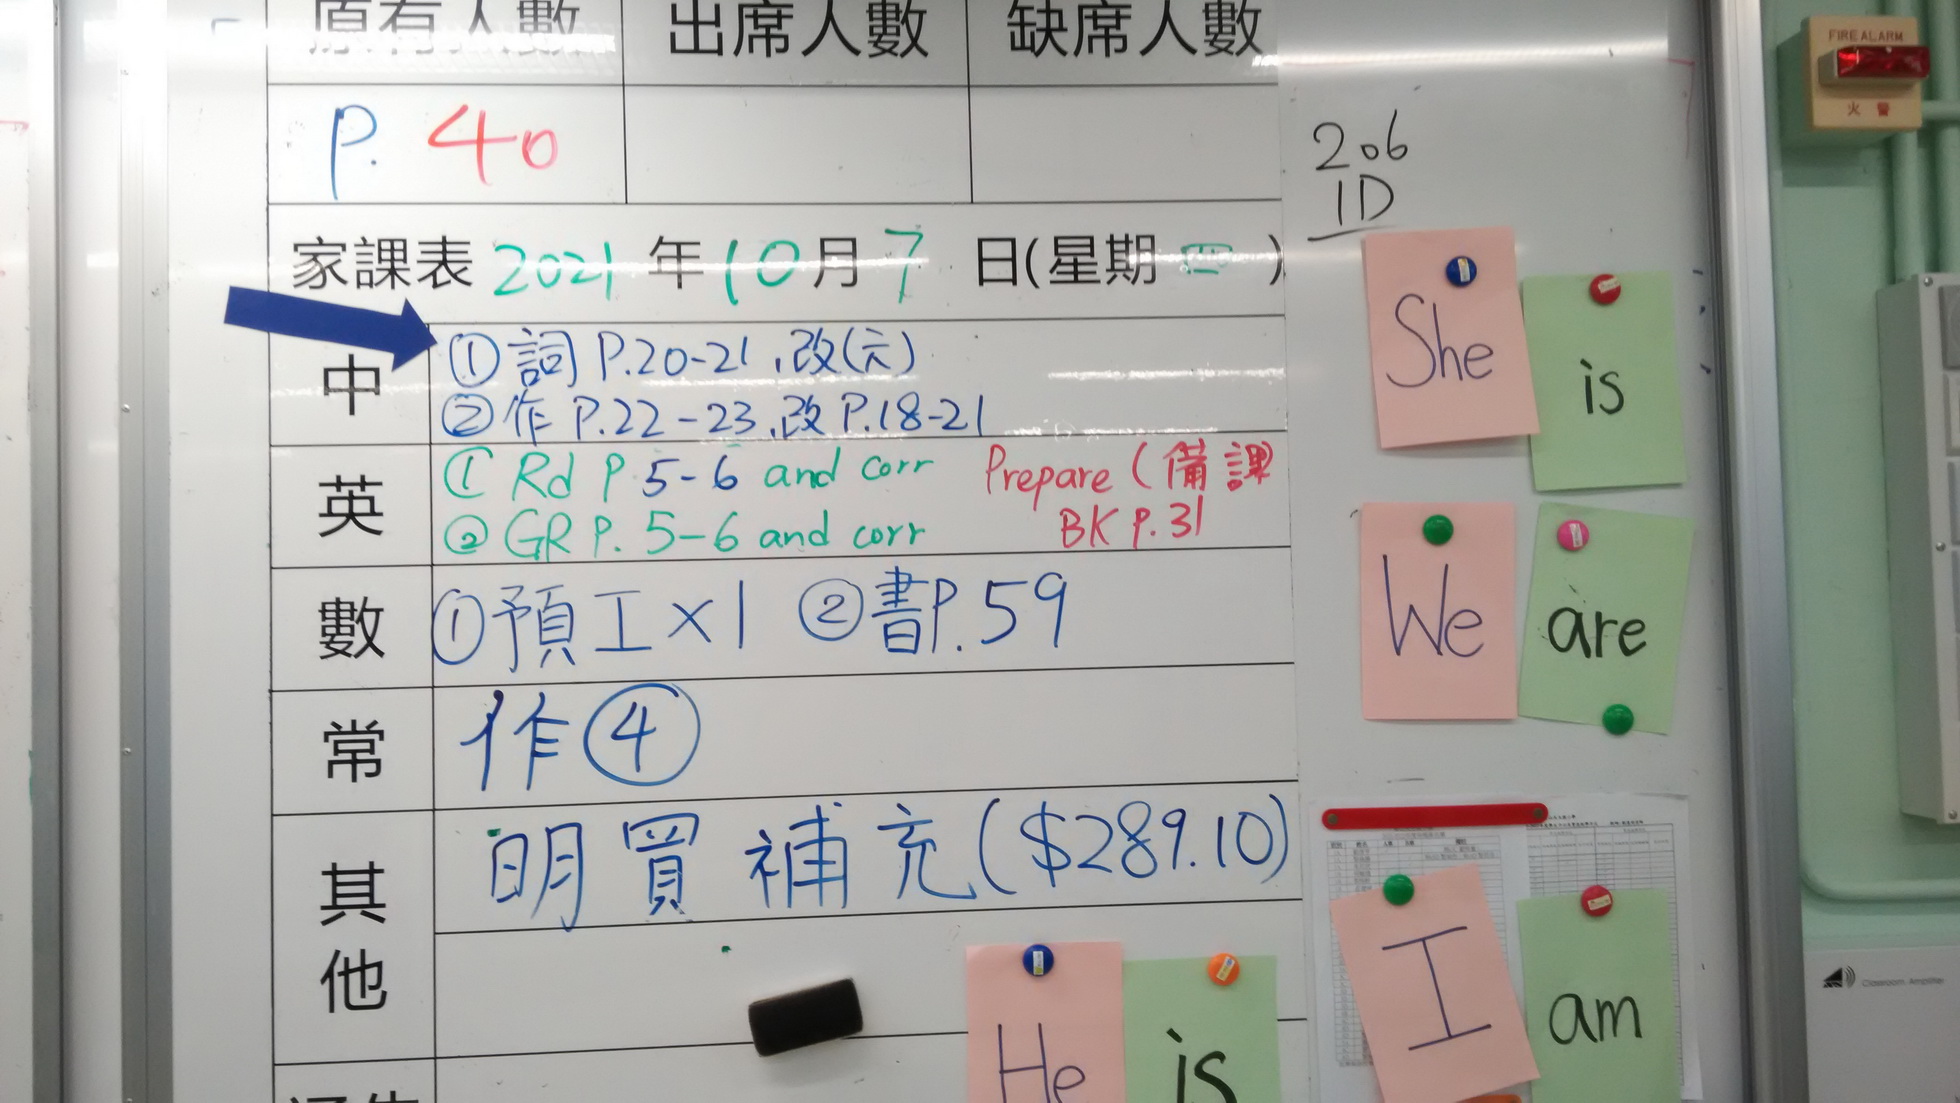 原有人數 出席人數 缺席人數
P. 40
家課表 2021 年 10 月 7 日(星期 四 )
中 ① 詞 P.20-21,改(六)
② 作 P.22-23,改 P.18-21
英 ① Rd P 5-6 and corr Prepare (備課
② GR P. 5-6 and corr BK P.31
數 ①預工×1 ②書P.59
常 作④
其他 明買補充($289.10)
206
1D
She is
We are
I am
He is
FIRE ALARM
火警
Classroom Amplifier